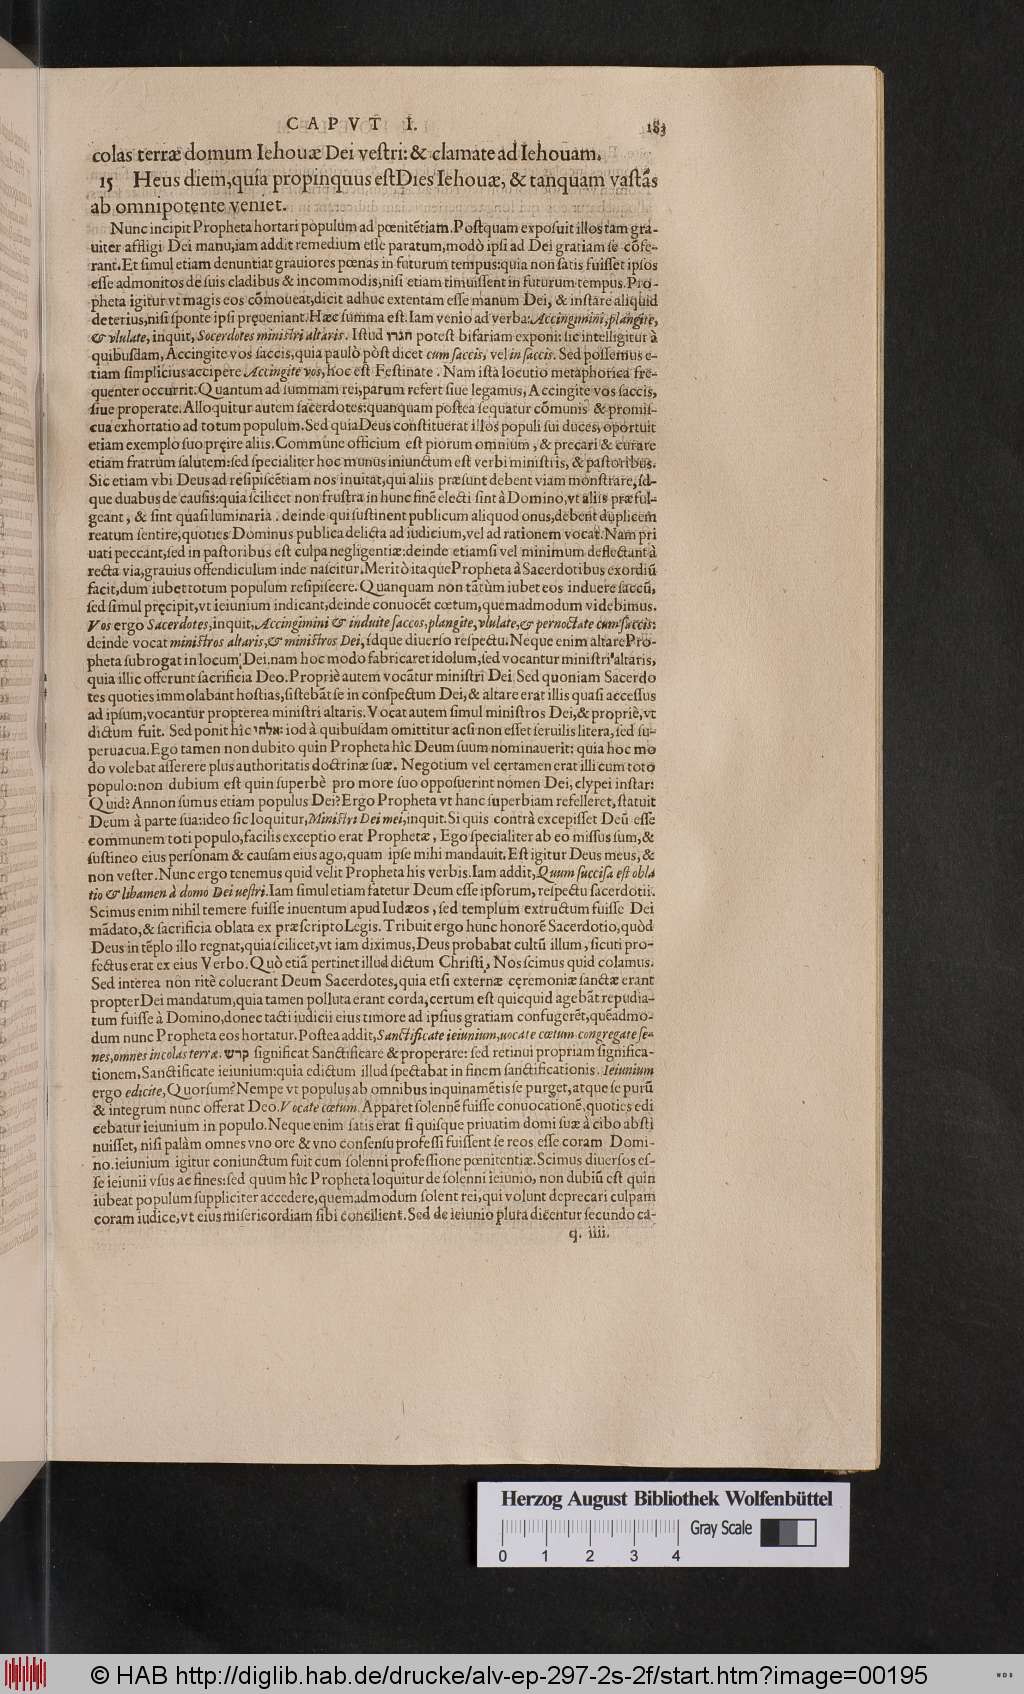 CAPVT I. 183
colas terræ domum Iehouæ Dei veſtri: & clamate ad Iehouam.
15 Heus diem, quia propinquus eſt Dies Iehouæ, & tanquam vaſtãs
ab omnipotente veniet.
Nunc incipit Propheta hortari populum ad pœnitẽtiam. Poſtquam expoſuit illos tam gra-
uiter affligi Dei manu, iam addit remedium eſſe paratum, modò ipſi ad Dei gratiam ſe cõfe-
rant. Et ſimul etiam denuntiat grauiores pœnas in futurum tempus: quia non ſatis fuiſſet ipſos
eſſe admonitos de ſuis cladibus & incommodis, niſi etiam timuiſſent in futurum tempus. Pro-
pheta igitur vt magis eos cõmoueat, dicit adhuc extentam eſſe manum Dei, & inſtare aliquid
deterius, niſi ſponte ipſi pręueniant. Hæc ſumma eſt. Iam venio ad verba: Accingimini, plangite,
& vlulate, inquit, Sacerdotes miniſtri altaris. Iſtud חגרו poteſt bifariam exponi: ſic intelligitur à
quibuſdam, Accingite vos ſaccis, quia paulò pòſt dicet cum ſaccis, vel in ſaccis. Sed poſſemus e-
tiam ſimplicius accipere Accingite vos, hoc eſt Feſtinate. Nam iſta locutio metaphorica fre-
quenter occurrit. Quantum ad ſummam rei, parum refert ſiue legamus, Accingite vos ſaccis,
ſiue properate. Alloquitur autem ſacerdotes: quanquam poſtea ſequatur cõmunis & promiſ-
cua exhortatio ad totum populum. Sed quia Deus conſtituerat illos populi ſui duces, oportuit
etiam exemplo ſuo pręire aliis. Commune officium eſt piorum omnium, & precari & curare
etiam fratrum ſalutem: ſed ſpecialiter hoc munus iniunctum eſt verbi miniſtris, & paſtoribus.
Sic etiam vbi Deus ad reſipiſcẽtiam nos inuitat, qui aliis præſunt debent viam monſtrare, íd-
que duabus de cauſis: quia ſcilicet non fruſtra in hunc finẽ electi ſint à Domino, vt aliis præful-
geant, & ſint quaſi luminaria. deinde qui ſuſtinent publicum aliquod onus, debent duplicem
reatum ſentire, quoties Dominus publica delicta ad iudicium, vel ad rationem vocat. Nam pri
uati peccant, ſed in paſtoribus eſt culpa negligentiæ: deinde etiamſi vel minimum deflectant à
recta via, grauius offendiculum inde naſcitur. Meritò itaque Propheta à Sacerdotibus exordiũ
facit, dum iubet totum populum reſipiſcere. Quanquam non tãtùm iubet eos induere ſaccũ,
ſed ſimul pręcipit, vt ieiunium indicant, deinde conuocẽt cœtum, quemadmodum videbimus.
Vos ergo Sacerdotes, inquit, Accingimini & induite ſaccos, plangite, vlulate, & pernoctate cum ſaccis:
deinde vocat miniſtros altaris, & miniſtros Dei, ſdque diuerſo reſpectu. Neque enim altare Pro-
pheta ſubrogat in locum Dei, nam hoc modo fabricaret idolum, ſed vocantur miniſtri altaris,
quia illic offerunt ſacrificia Deo. Propriè autem vocãtur miniſtri Dei Sed quoniam Sacerdo
tes quoties immolabant hoſtias, ſiſtebãt ſe in conſpectum Dei, & altare erat illis quaſi acceſſus
ad ipſum, vocantur propterea miniſtri altaris. Vocat autem ſimul miniſtros Dei, & propriè, vt
dictum fuit. Sed ponit hîc אלהי: iod à quibuſdam omittitur acſi non eſſet ſeruilis litera, ſed ſu-
peruacua. Ego tamen non dubito quin Propheta hîc Deum ſuum nominauerit: quia hoc mo
do volebat aſſerere plus authoritatis doctrinæ ſuæ. Negotium vel certamen erat illi cum toto
populo: non dubium eſt quin ſuperbè pro more ſuo oppoſuerint nomen Dei, clypei inſtar:
Quid? Annon ſumus etiam populus Dei? Ergo Propheta vt hanc ſuperbiam refelleret, ſtatuit
Deum à parte ſua: ideo ſic loquitur, Miniſtri Dei mei, inquit. Si quis contrà excepiſſet Deũ eſſe
communem toti populo, facilis exceptio erat Prophetæ, Ego ſpecialiter ab eo miſſus ſum, &
ſuſtineo eius perſonam & cauſam eius ago, quam ipſe mihi mandauit. Eſt igitur Deus meus, &
non veſter. Nunc ergo tenemus quid velit Propheta his verbis. Iam addit, Quum ſucciſa eſt obla
tio & libamen à domo Dei ueſtri. Iam ſimul etiam fatetur Deum eſſe ipſorum, reſpectu ſacerdotii.
Scimus enim nihil temere fuiſſe inuentum apud Iudæos, ſed templum extructum fuiſſe Dei
mãdato, & ſacrificia oblata ex præſcripto Legis. Tribuit ergo hunc honorẽ Sacerdotio, quòd
Deus in tẽplo illo regnat, quia ſcilicet, vt iam diximus, Deus probabat cultũ illum, ſicuti pro-
fectus erat ex eius Verbo. Quò etiã pertinet illud dictum Chriſti, Nos ſcimus quid colamus.
Sed interea non ritè coluerant Deum Sacerdotes, quia etſi externæ cęremoniæ ſanctæ erant
propter Dei mandatum, quia tamen polluta erant corda, certum eſt quicquid agebãt repudia-
tum fuiſſe à Domino, donec tacti iudicii eius timore ad ipſius gratiam confugerẽt, quẽadmo-
dum nunc Propheta eos hortatur. Poſtea addit, Sanctificate ieiunium, uocate cœtum congregate ſe-
nes, omnes incolas terræ. קדש ſignificat Sanctificare & properare: ſed retinui propriam ſignifica-
tionem, Sanctificate ieiunium: quia edictum illud ſpectabat in finem ſanctificationis. Ieiunium
ergo edicite, Quorſum? Nempe vt populus ab omnibus inquinamẽtis ſe purget, atque ſe purũ
& integrum nunc offerat Deo. Vocate cœtum. Apparet ſolennẽ fuiſſe conuocationẽ, quoties edi
cebatur ieiunium in populo. Neque enim ſatis erat ſi quiſque priuatim domi ſuæ à cibo abſti
nuiſſet, niſi palàm omnes vno ore & vno conſenſu profeſſi fuiſſent ſe reos eſſe coram Domi-
no. ieiunium igitur coniunctum fuit cum ſolenni profeſſione pœnitentiæ. Scimus diuerſos eſ-
ſe ieiunii vſus ac fines: ſed quum hîc Propheta loquitur de ſolenni ieiunio, non dubiũ eſt quin
iubeat populum ſuppliciter accedere, quemadmodum ſolent rei, qui volunt deprecari culpam
coram iudice, vt eius miſericordiam ſibi concilient. Sed de ieiunio plura dicentur ſecundo ca-
q. iiii.
Herzog August Bibliothek Wolfenbüttel
Gray Scale
0 1 2 3 4
© HAB http://diglib.hab.de/drucke/alv-ep-297-2s-2f/start.htm?image=00195
WDB